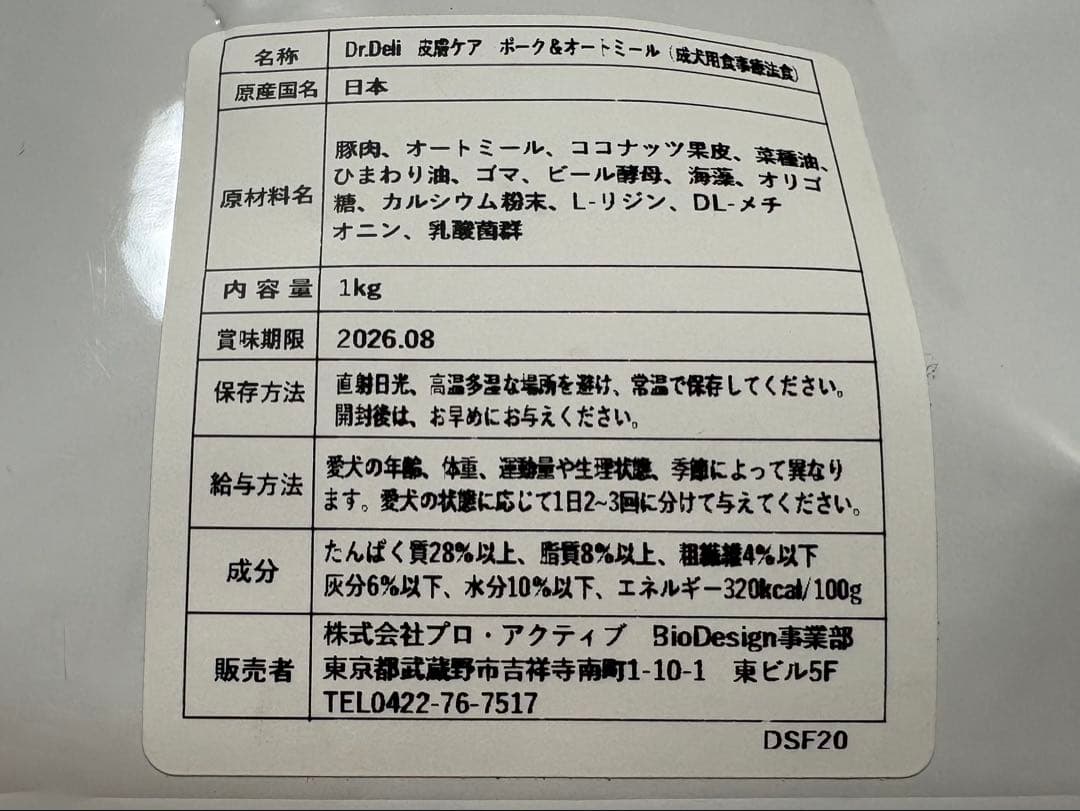 名称 Dr.Deli 皮膚ケア ポーク&オートミール（成犬用食事療法食）
原産国名 日本
原材料名 豚肉、オートミール、ココナッツ果皮、菜種油、
ひまわり油、ゴマ、ビール酵母、海藻、オリゴ
糖、カルシウム粉末、L-リジン、DL-メチ
オニン、乳酸菌群
内容量 1kg
賞味期限 2026.08
保存方法 直射日光、高温多湿な場所を避け、常温で保存してください。
開封後は、お早めにお与えください。
給与方法 愛犬の年齢、体重、運動量や生理状態、季節によって異なり
ます。愛犬の状態に応じて1日2~3回に分けて与えてください。
成分 たんぱく質28%以上、脂質8%以上、粗繊維4%以下
灰分6%以下、水分10%以下、エネルギー320kcal/100g
販売者 株式会社プロ・アクティブ BioDesign事業部
東京都武蔵野市吉祥寺南町1-10-1 東ビル5F
TEL0422-76-7517
DSF20